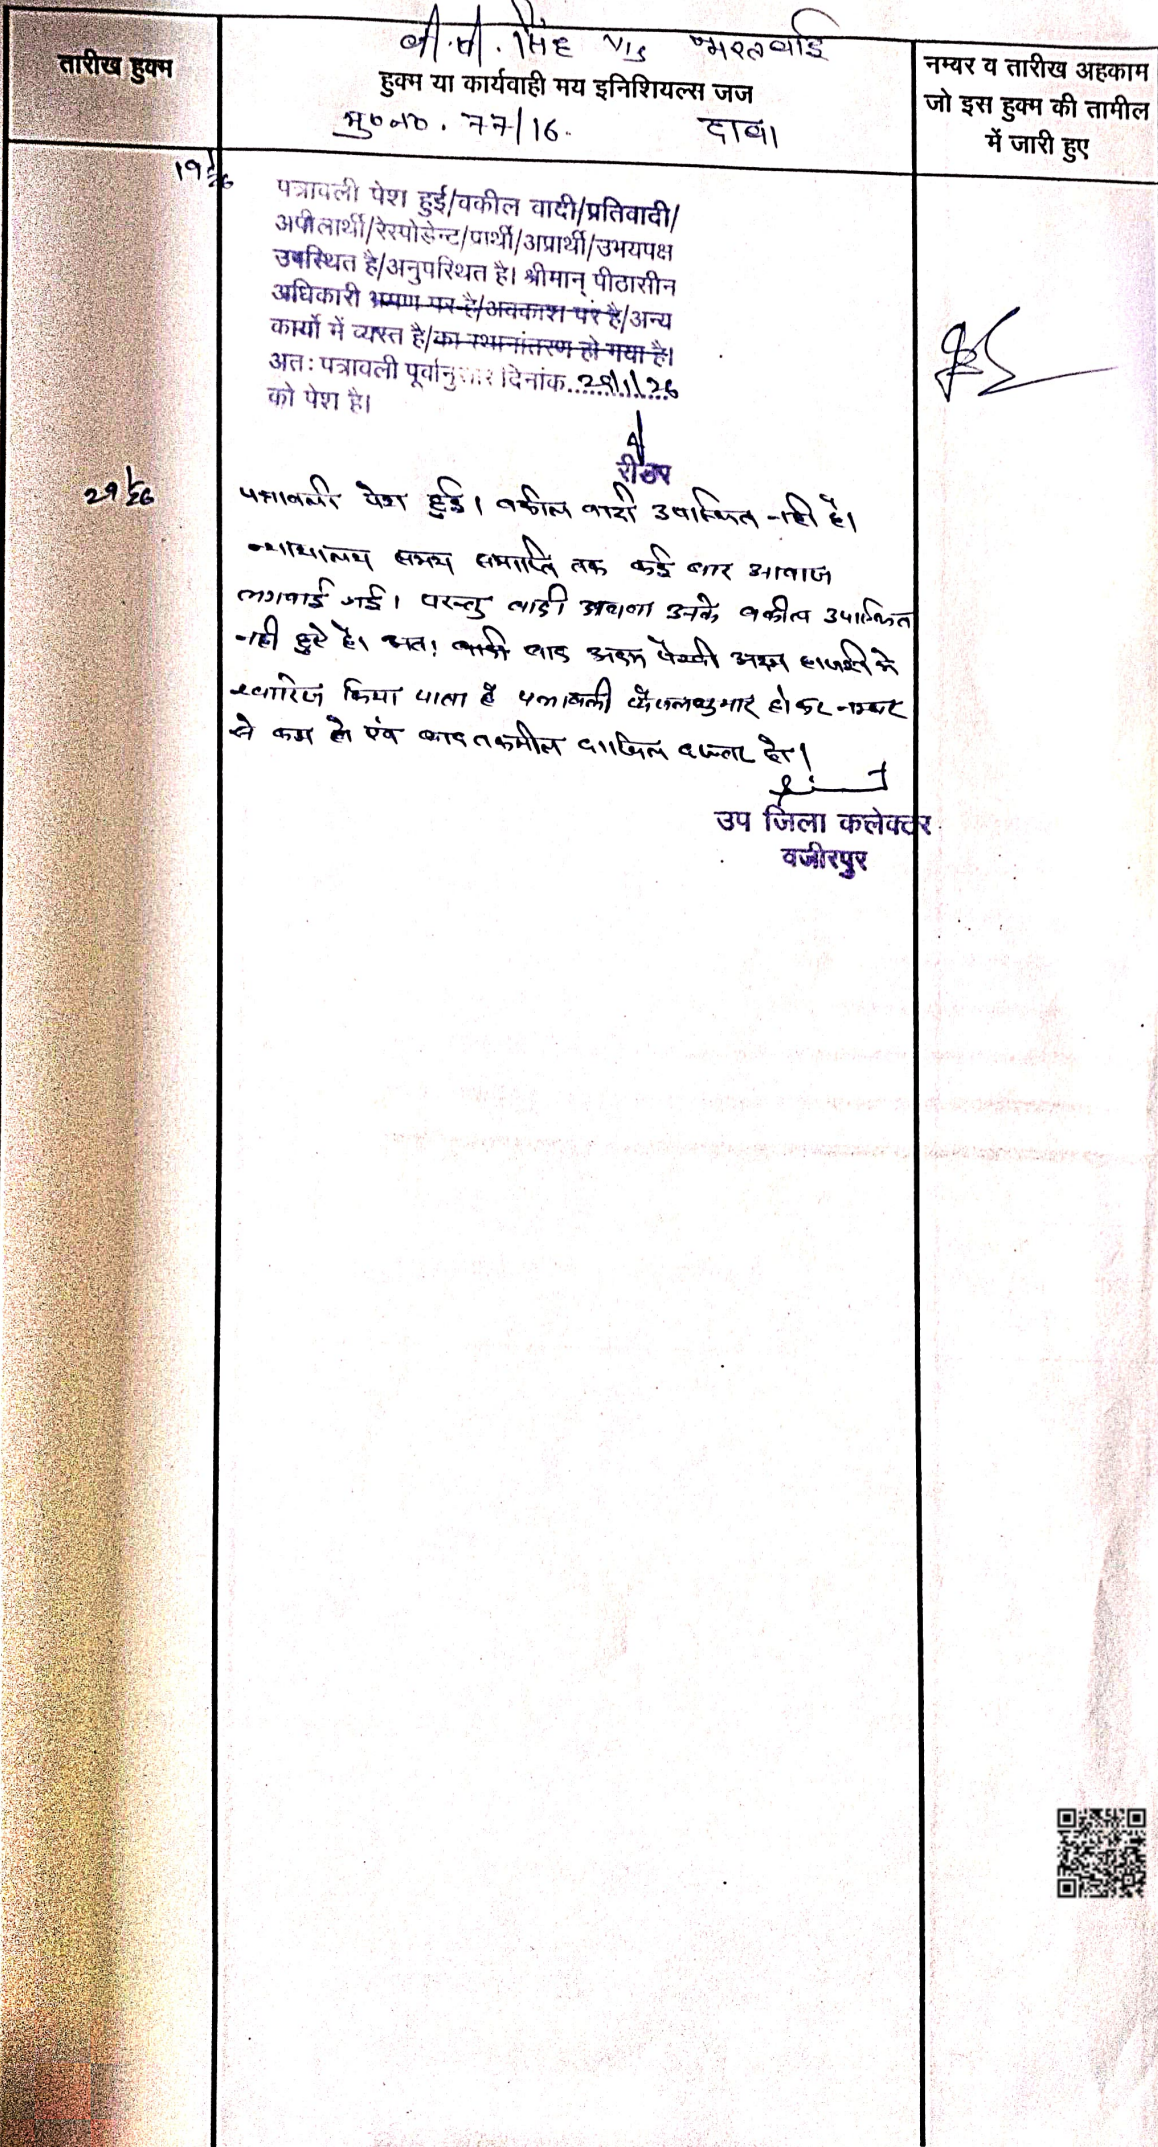 बी.पी. सिंह V/s भरतबाई
तारीख हुक्म
हुक्म या कार्यवाही मय इनिशियल्स जज
मु०न०. 77/16. दावा
नम्बर व तारीख अहकाम
जो इस हुक्म की तामील
में जारी हुए
19/1/26
पत्रावली पेश हुई/वकील वादी/प्रतिवादी/
अपीलार्थी/रेस्पोडेन्ट/प्रार्थी/अप्रार्थी/उभयपक्ष
उपस्थित है/अनुपस्थित है। श्रीमान् पीठासीन
अधिकारी भ्रमण पर है/अवकाश पर है/अन्य
कार्यो में व्यस्त है/का स्थानांतरण हो गया है।
अतः पत्रावली पूर्वानुसार दिनांक 29/1/26
को पेश है।
रीडर
29/1/26
पत्रावली पेश हुई। वकील वादी उपस्थित नही है।
न्यायालय समय समाप्ति तक कई बार आवाज
लगवाई गई। परन्तु वादी अथवा उनके वकील उपस्थित
नही हुऐ है। अतः वादी वाद अदम पैरवी अदम हाजरी मे
खारिज किया जाता है पत्रावली फैसलशुमार होकर नम्बर
से कम हो एंव बाद तकमील दाखिल दफ्तर हो।
उप जिला कलेक्टर
वजीरपुर